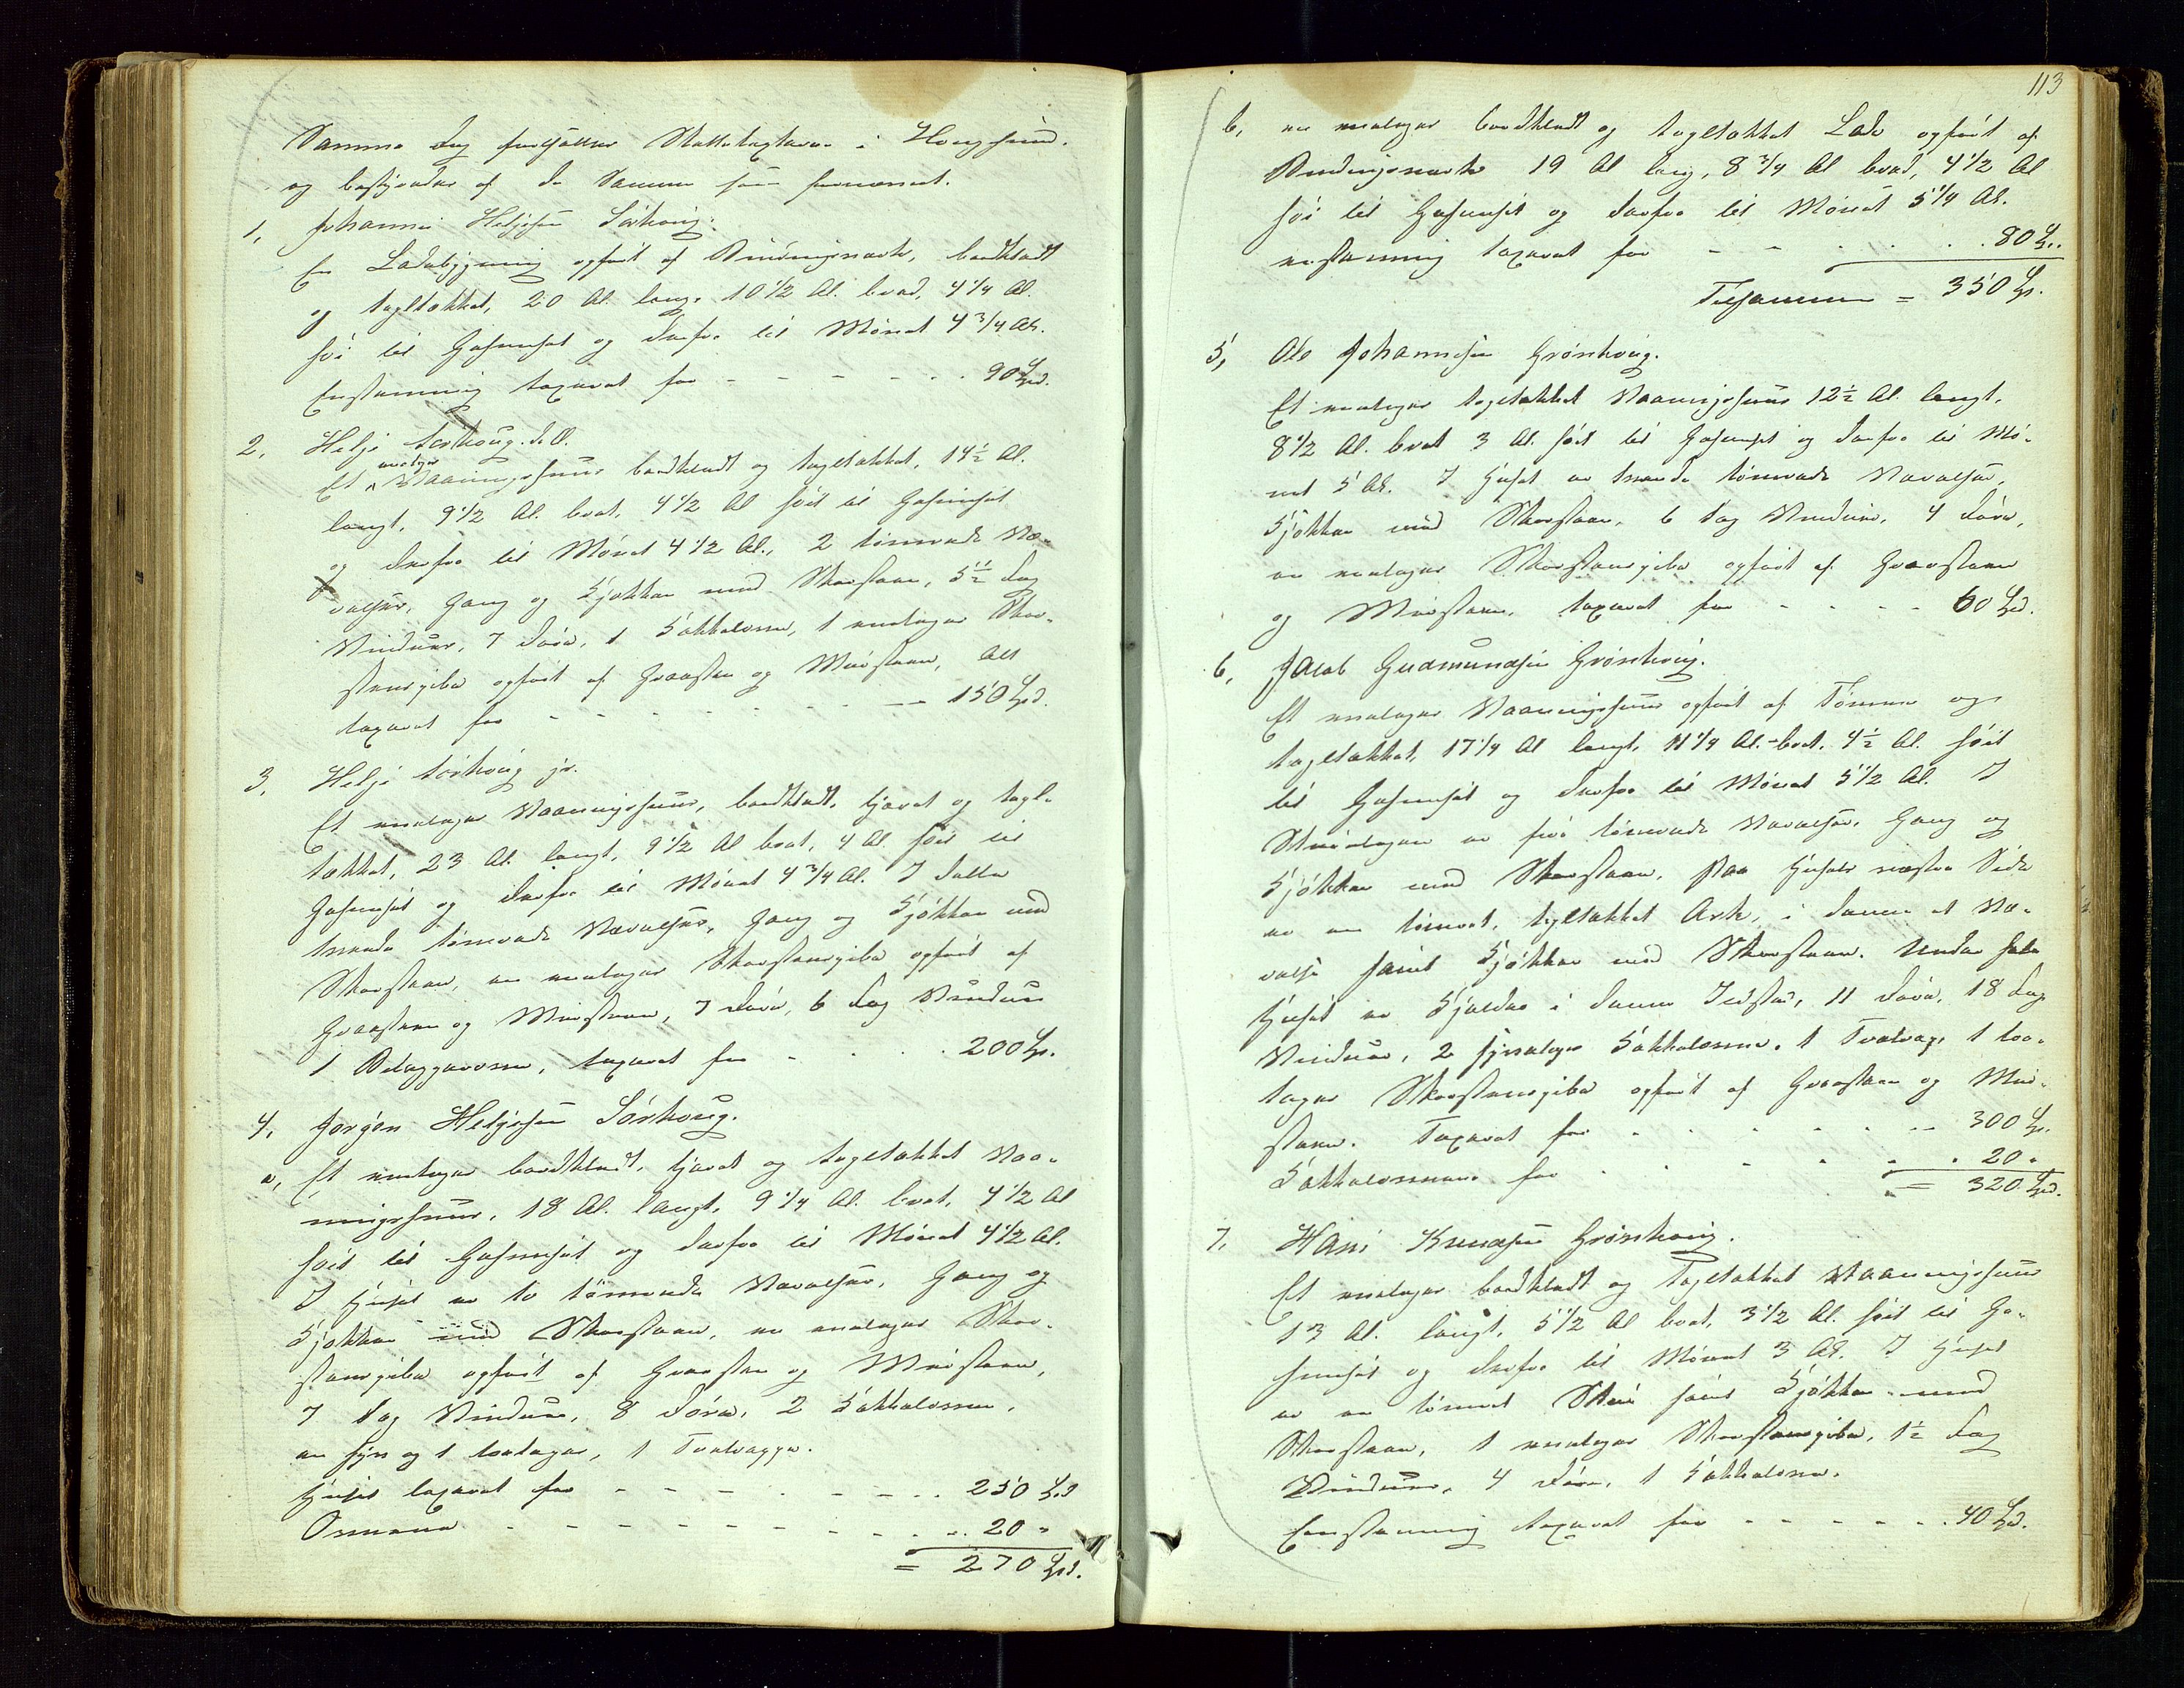 Samme Dag fortsattes Skattetaxterne i Hougsund
og bestyredes af de Samme som fornævnt.
1, Johannes Helgesen Sørhoug:
En Ladebygning opført af Bindingsværk, bordklædt
og tagltækket, 20 Al. lang, 10 1/2 Al. bred, 4 1/4 Al.
høi til Gesimset og derfra til Mønet 4 3/4 Al.
Enstemmig taxeret for - - - - - - 90 Spd.
2, Helje Sørhoug d.Æ.
Et enetages Vaaningshuus bordklædt og tagltækket, 14 1/2 Al.
langt, 9 1/2 Al. bret, 4 1/2 Al høit til Gesimset
og derfra til Mønet 4 1/2 Al., 2 tømrede Væ-
relser, Gang og Kjøkken med Skorsteen, 5 1/2 Fag
Vinduer, 7 Døre, 1 Kakkelovn, 1 enetages Skor-
steenspibe opført af Graasteen og Muursteen, Alt
taxeret for - - - - - - - 150 Spd.
3, Helje Sørhoug jr.
Et enetages Vaaningshuus, bordklædt, tjæret og tagl-
tækket, 23 Al. langt, 9 1/2 Al bret, 4 Al. høit til
Gesimset og derfra til Mønet 4 3/4 Al. I dette
trende tømrede Værelser, Gang og Kjøkken med
Skorsteen, en enetages Skorsteenspibe opført af
Graasteen og Muursteen, 7 Døre, 6 Fag Vinduer
1 Bilæggerovn, taxeret for - . . . 200 Sp.
4, Jørgen Helgesen Sørhoug.
a, Et enetages bordklædt, tjæret og tagltækket Vaa-
ningshuus, 18 Al. langt, 9 1/4 Al. bret, 4 1/2 Al
høit til Gesimset og derfra til Mønet 4 1/2 Al.
I Huset er to tømrede Værelser, Gang og
Kjøkken med Skorsteen, en enetages Skor-
steenspibe opført af Graasteen og Muursteen,
7 Fag Vinduer, 8 Døre, 2 Kakkelovne,
en fyr og 1 toetages, 1 Taltrappe.
Huset taxeret for - - - - - - - . 250 Spd
Ovnene - - - - - - - - - - 20 "
= 270 Spd.
113
b, en enetages bordklædt og tagltækket Lade opført af
Bindingsværk 19 Al lang, 8 3/4 Al bred, 4 1/2 Al
høi til Gesimset og derfra til Mønet 5 1/4 Al.
enstemmig taxeret for - - . . . 80 Sp.
Tilsammen = 350 Sp.
5, Ole Johannesen Grønhoug.
Et enetages tagltækket Vaaningshuus 12 1/2 Al. langt,
8 1/2 Al. bret 3 Al. høit til Gesimset og derfra til Mø-
net 5 Al. I Huset er trende tømrede Værelser,
Kjøkken med Skorsteen, 6 Fag Vinduer, 4 Døre,
en enetages Skorsteenspibe opført af Graasteen
og Muursteen, taxeret for - - - - 60 Spd.
6, Jacob Gudmundsen Grønhoug.
Et enetages Vaaningshuus opført af Tømmer og
tagltækket, 17 1/4 Al langt, 11 1/4 Al. bret, 4 1/2 Al. høit
til Gesimset og derfra til Mønet 5 1/2 Al. I
Stueetagen er fire tømrede Værelser, Gang og
Kjøkken med Skorsteen. Paa Husets næstre Side
er en tømret, tagltækket Ark, i denne et Væ-
relse samt Kjøkken med Skorsteen. Under hele
Huset er Kjelder i denne Ildsted, 11 Døre, 18 Fag
Vinduer, 2 fyrretages Kakkelovne, 1 , 1 toe-
tages Skorsteenspibe opført af Graasteen og Muur-
steen. Taxeret for - - - - - - 300 Sp.
Kakkelovnene for - - - - - 20 "
= 320 Spd.
7, Hans Knudsen Grønhoug.
Et enetages bordklædt og Tagltækket Vaaningshuus
13 Al. langt, 5 1/2 Al bret, 3 1/2 Al. høit til Ge-
simset og derfra til Mønet 3 Al. I Huset
er en tømret Stue samt Kjøkken med
Skorsteen, 1 enetages Skorsteenspibe, 1 1/2 Fag
Vinduer, 4 Døre, 1 Kakkelovn.
Eenstemmig taxeret for - - - - - - 40 Spd.